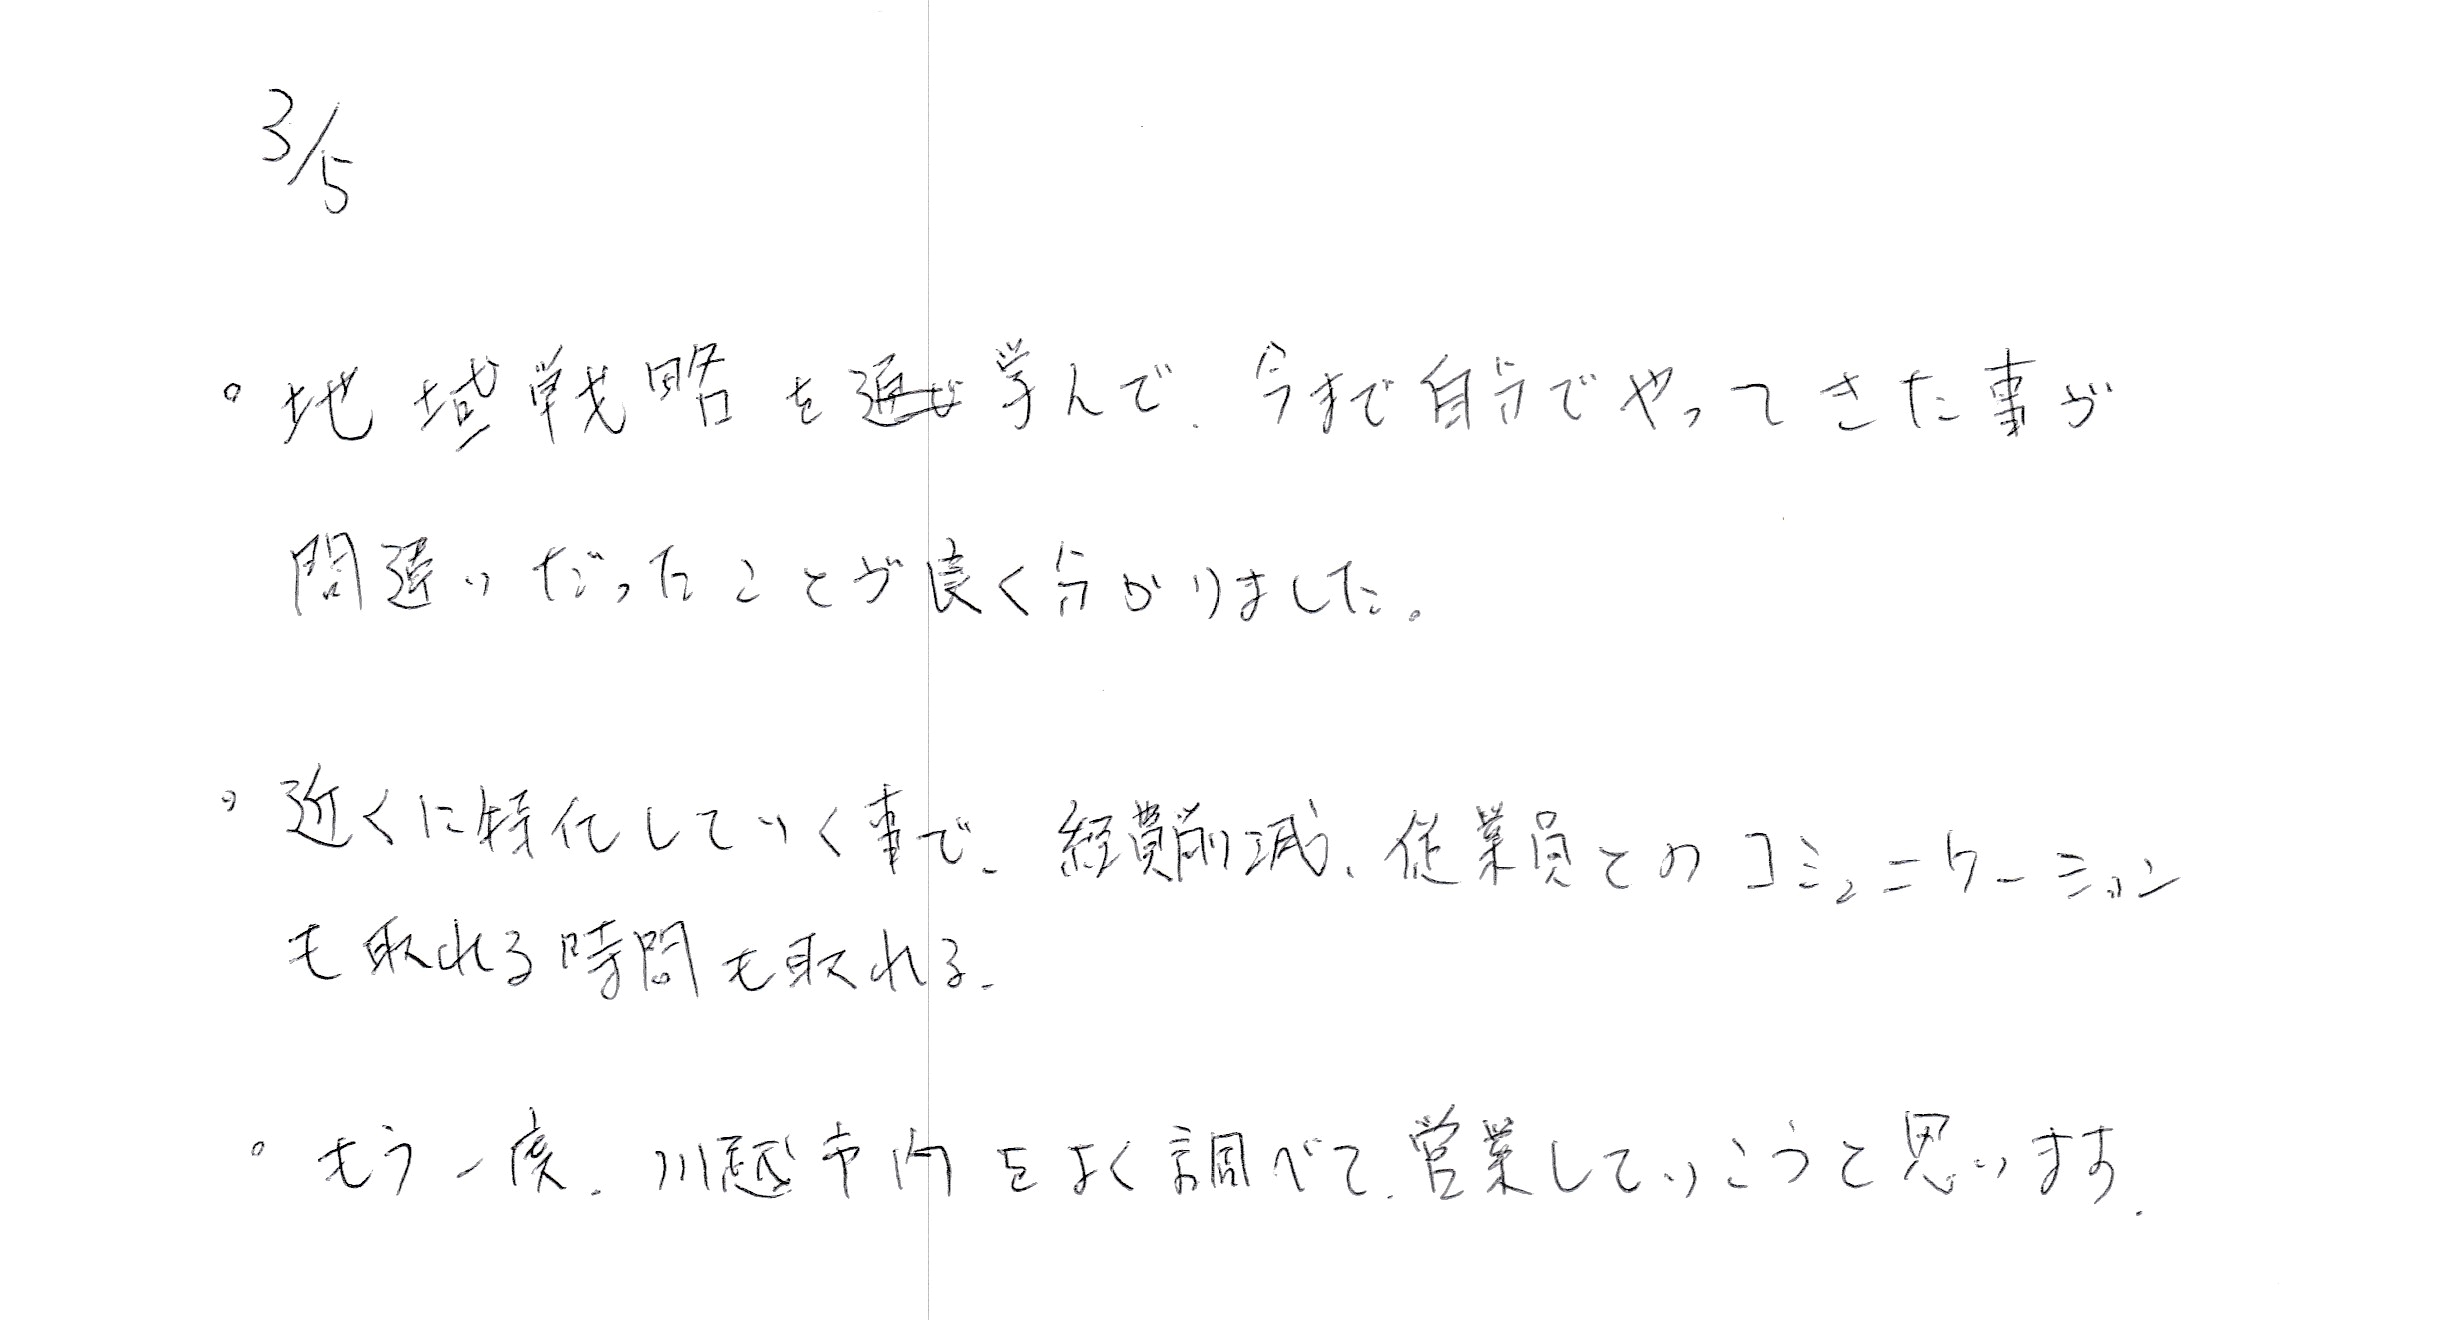 3/5
。地域戦略を学んで、今まで自分でやってきた事が
間違いだったことが良く分かりました。
。近くに特化していく事で、経費削減、従業員とのコミュニケーション
も取れる時間も取れる。
。もう一度、川越市内をよく調べて、営業していこうと思います。